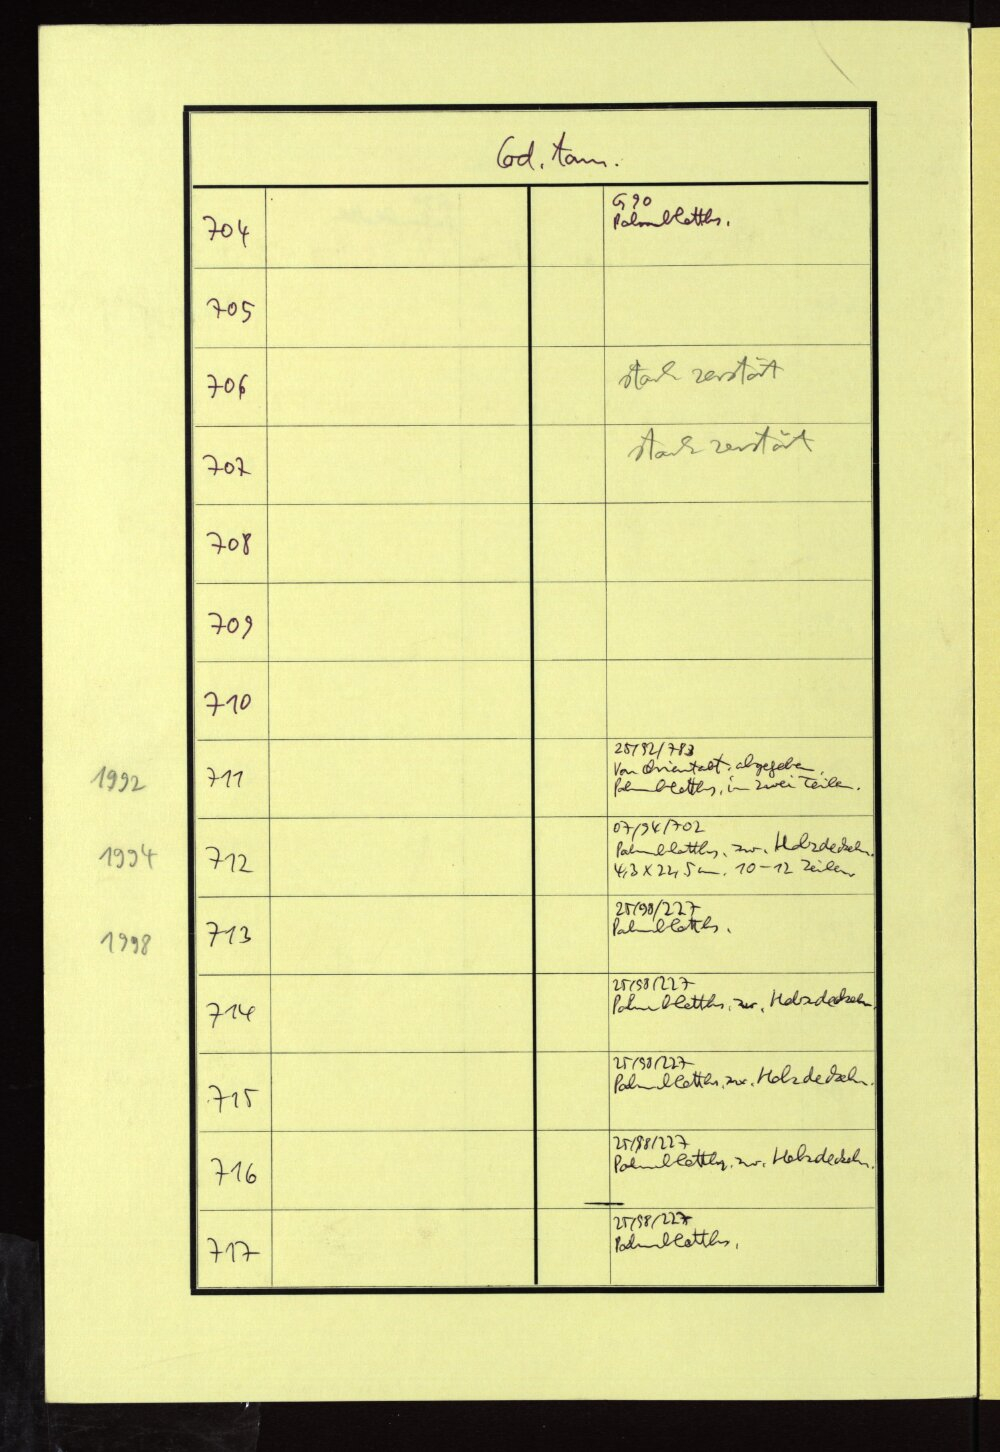 Cod. tam.
704
G 90
Palmblatths.
705
706
stark zerstört
707
stark zerstört
708
709
710
1992
711
25/92/783
Von Orientabt. abgegeben.
Palmblatths, in zwei Teilen.
1994
712
07/94/702
Palmblatths. zw. Holzdeckeln.
4,3 x 22,5 cm. 10-12 Zeilen.
1998
713
25/98/227
Palmblatths.
714
25/98/227
Palmblatths. zw. Holzdeckeln.
715
25/98/227
Palmblatths. zw. Holzdeckeln.
716
25/98/227
Palmblatths. zw. Holzdeckeln.
717
25/98/227
Palmblatths.